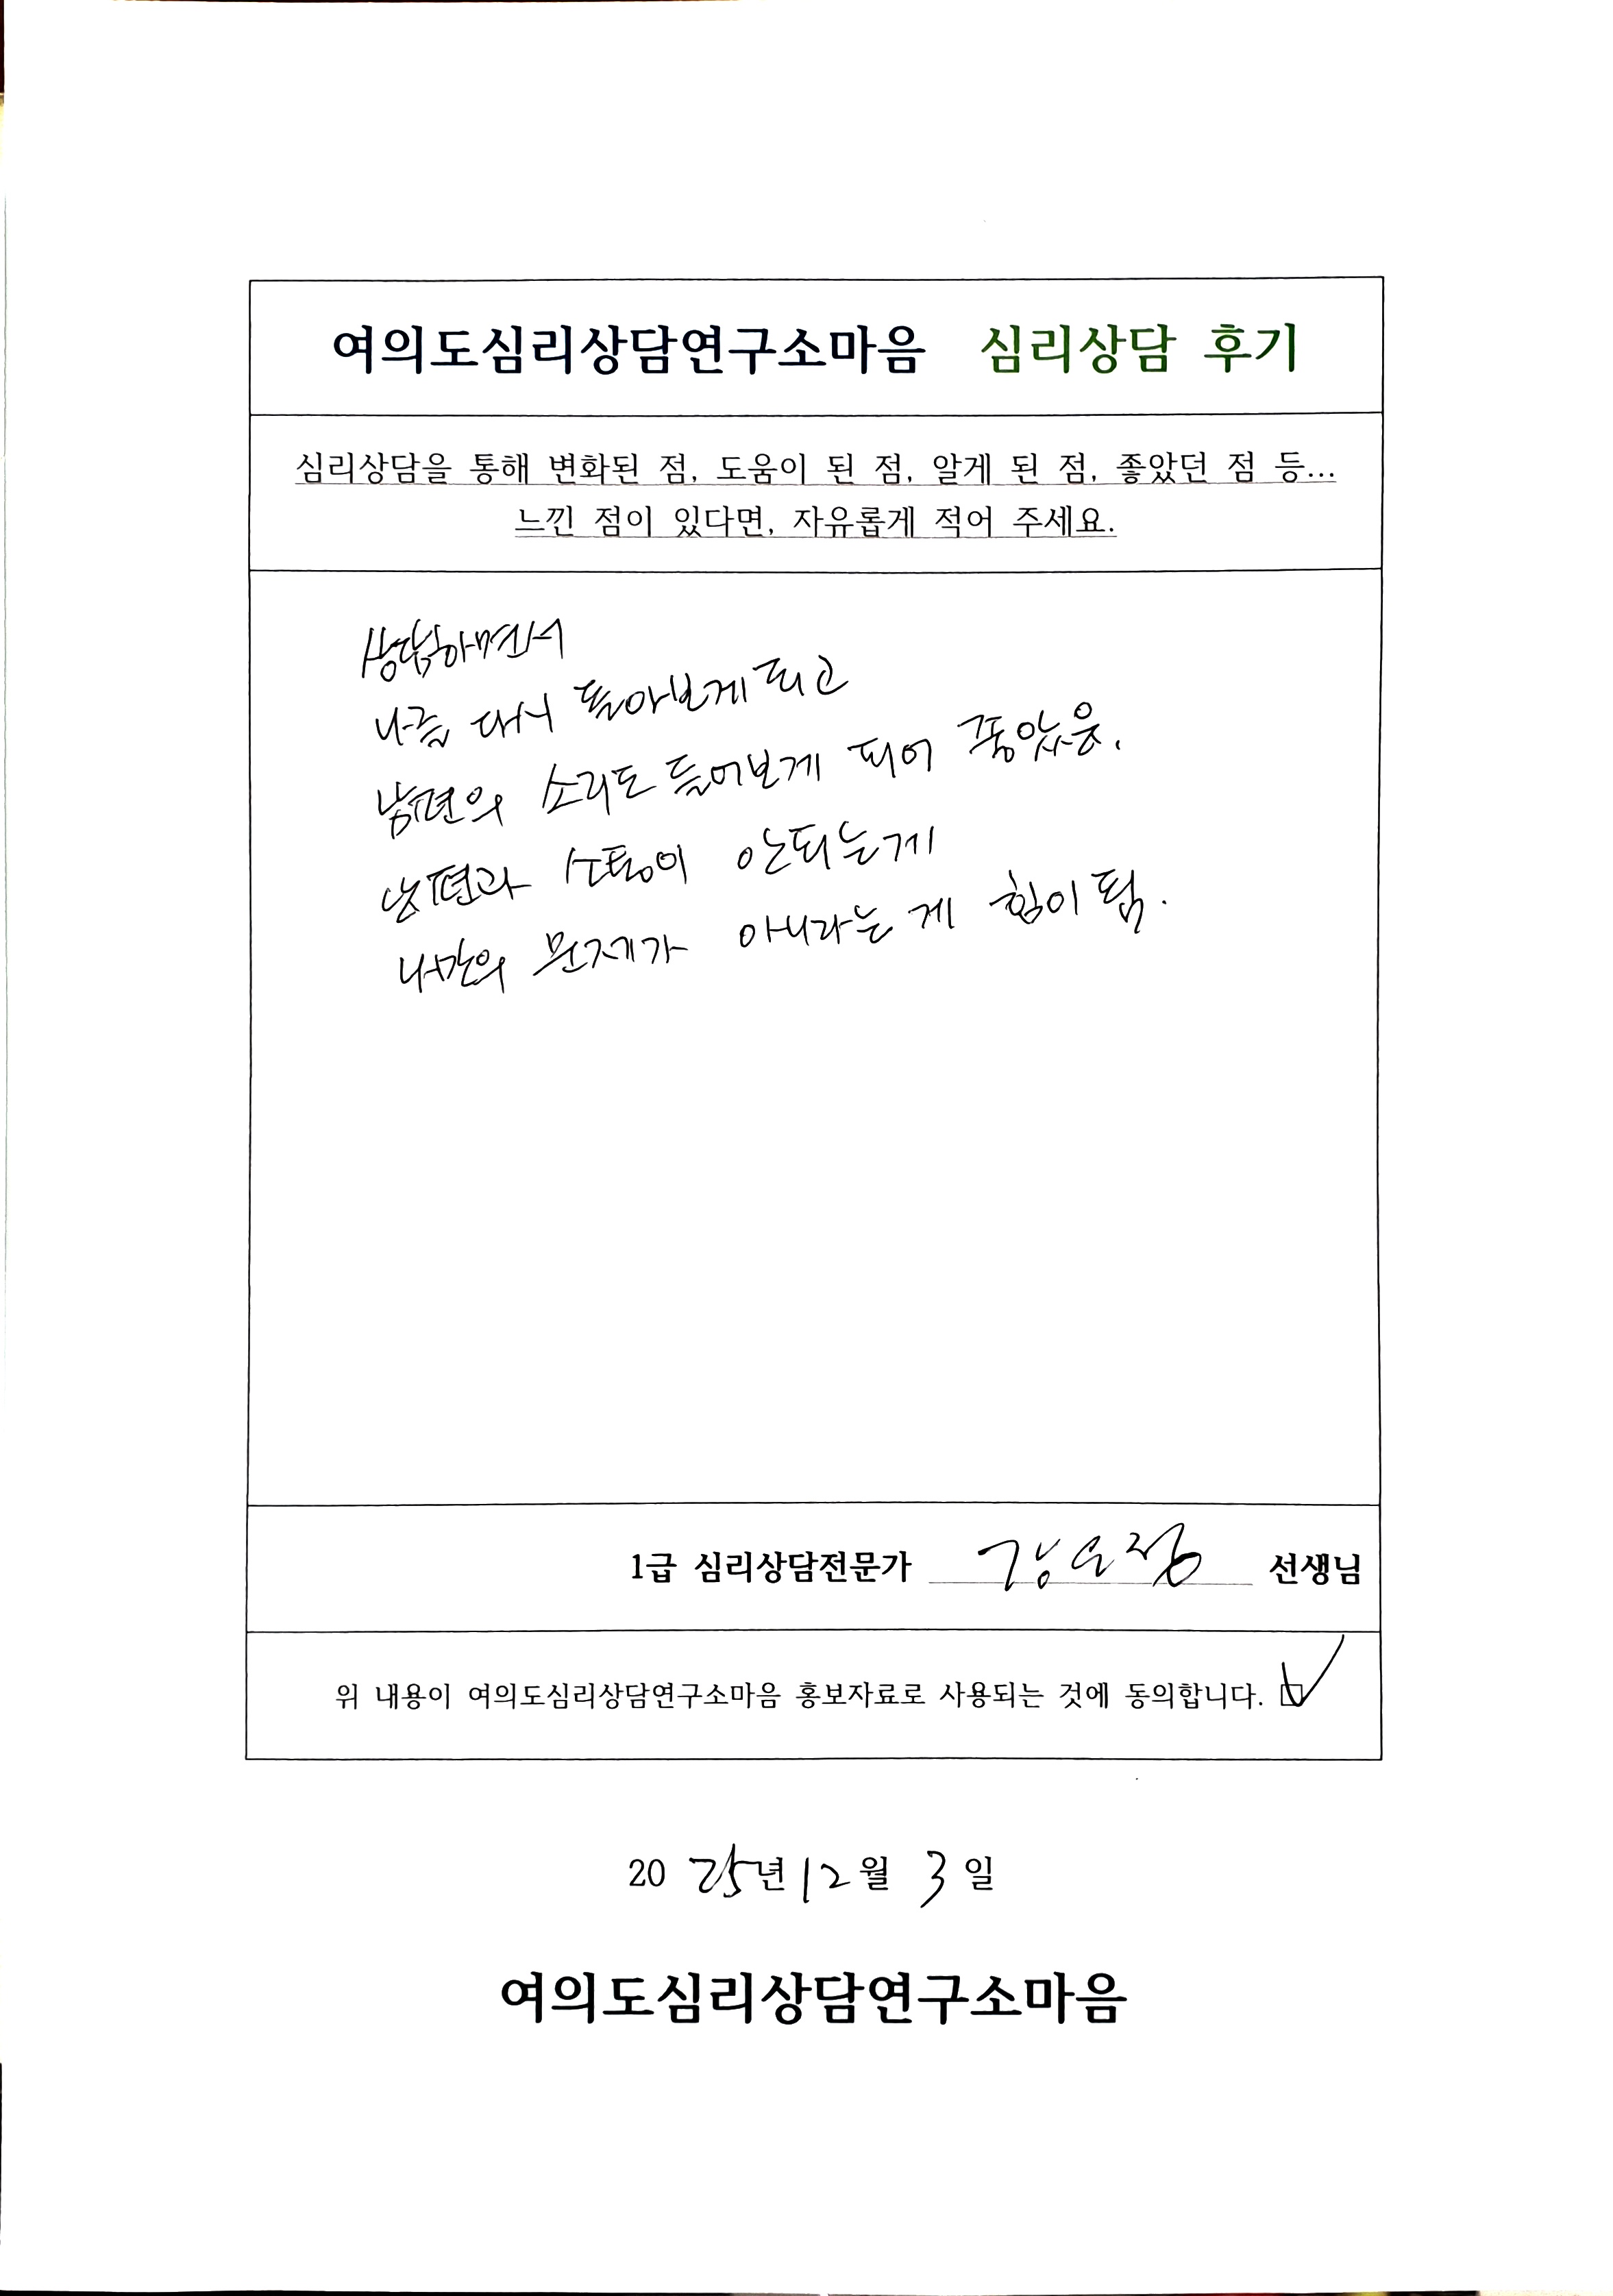 여의도심리상담연구소마음 심리상담 후기
심리상담을 통해 변화된 점, 도움이 된 점, 알게 된 점, 좋았던 점 등...
느낀 점이 있다면, 자유롭게 적어 주세요.
상담하면서
나를 다시 돌아보게 되고
남편의 소리도 들어보게 되어 좋았음.
남편과 소통이 안되는게
나만의 문제가 아니라는 게 힘이 됨.
1급 심리상담전문가 선생님
위 내용이 여의도심리상담연구소마음 홍보자료로 사용되는 것에 동의합니다.
2025년 12월 3일
여의도심리상담연구소마음